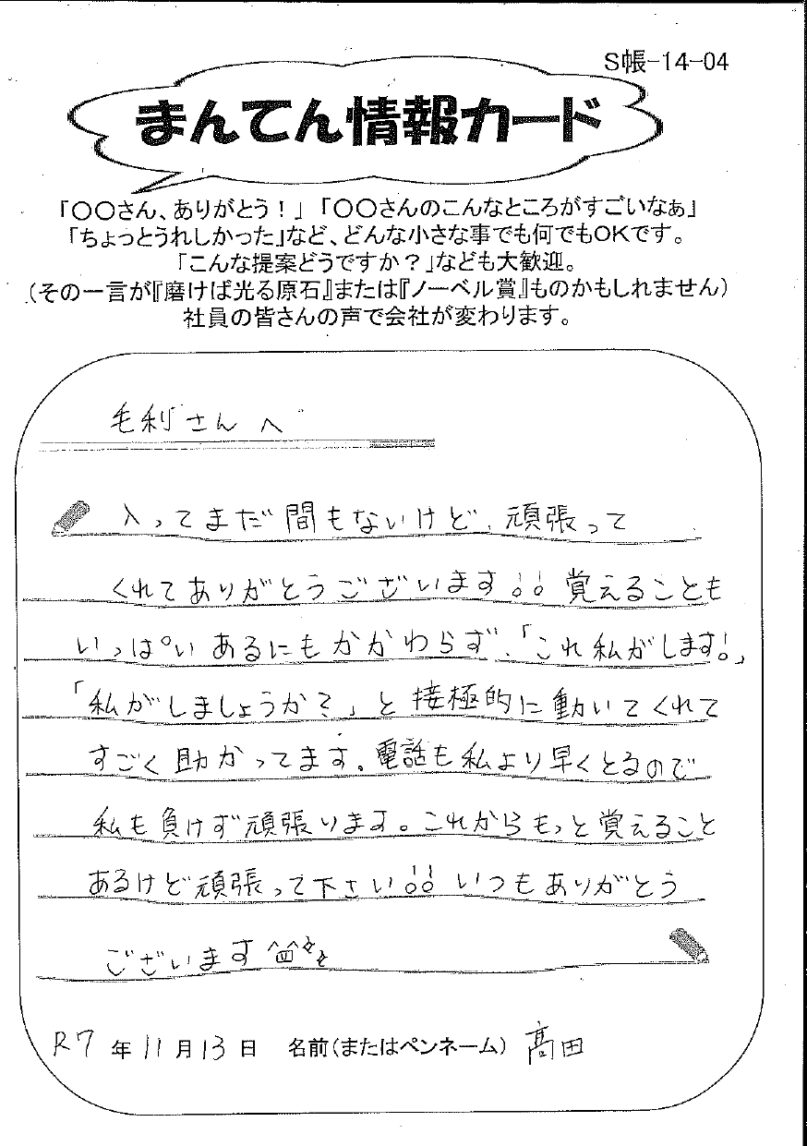 S帳-14-04
まんてん情報カード
「〇〇さん、ありがとう！」「〇〇さんのこんなところがすごいなぁ」
「ちょっとうれしかった」など、どんな小さな事でも何でもOKです。
「こんな提案どうですか？」なども大歓迎。
（その一言が『磨けば光る原石』または『ノーベル賞』ものかもしれません）
社員の皆さんの声で会社が変わります。
毛利さんへ
入ってまだ間もないけど、頑張って
くれてありがとうございます!! 覚えることも
いっぱいあるにもかかわらず、「これ私がします!」
「私がしましょうか?」と接極的に動いてくれて
すごく助かってます。電話も私より早くとるので
私も負けず頑張ります。これからもっと覚えること
あるけど頑張って下さい!! いつもありがとう
ございます
R7年11月13日 名前（またはペンネーム） 髙田